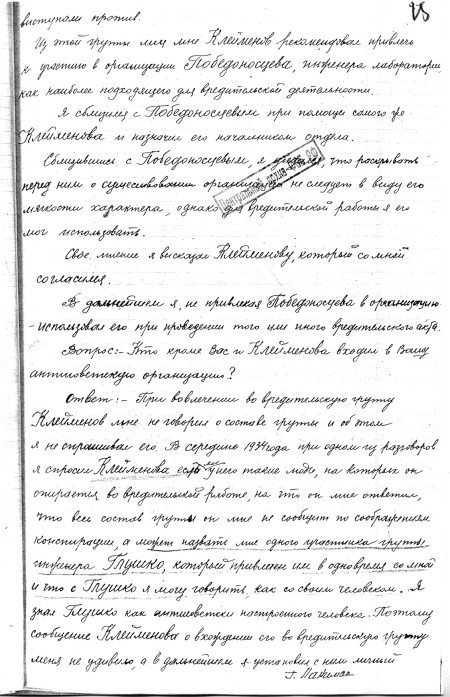 25
выступали против.
Из этой группы лиц мне Клейменов рекомендовал привлечь
к участию в организации Победоносцева, инженера лаборатории
как наиболее подходящего для вредительской деятельности.
Я сблизился с Победоносцевым при помощи самого же
Клейменова и назначил его начальником отдела.
Сблизившись с Победоносцевым, я убедился, что раскрывать
перед ним о существовании организации не следует в виду его
мягкости характера, однако для вредительской работы я его
мог использовать.
Свое мнение я высказал Клейменову, который со мной
согласился.
В дальнейшем я, не привлекая Победоносцева в организацию
- использовал его при проведении того или иного вредительского акта.
Вопрос:- Кто кроме Вас и Клейменова входил в Вашу
антисоветскую организацию?
Ответ:- При вовлечении во вредительскую группу
Клейменов мне не говорил о составе группы и об этом
я не спрашивал его. В середине 1934 года при одном из разговоров
я спросил Клейменова есть ли у него такие люди, на которых он
опирается во вредительской работе, на что он мне ответил,
что весь состав группы он мне не сообщит по соображениям
конспирации, а может назвать мне одного участника группы
инженера Глушко, который привлечен им в одно время со мной
и что с Глушко я могу говорить, как со своим человеком. Я
знал Глушко как антисоветски настроенного человека. Поэтому
сообщение Клейменова о вхождении его во вредительскую группу
меня не удивило, а в дальнейшем я установил с ним личный